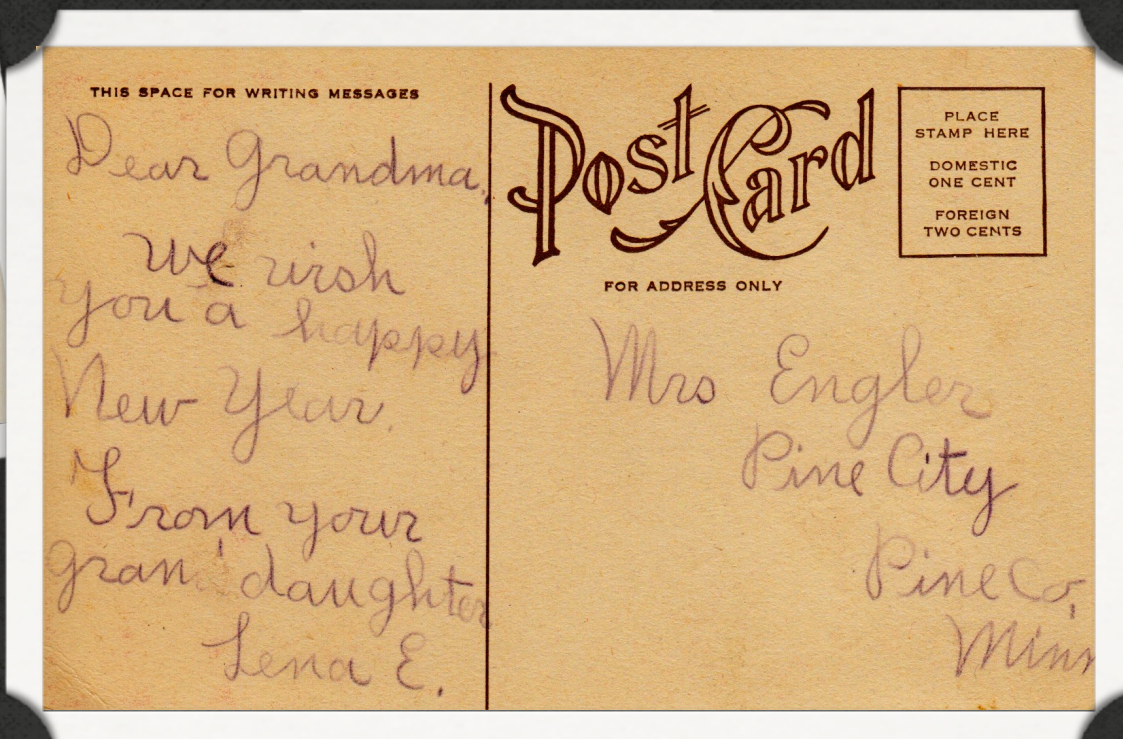 THIS SPACE FOR WRITING MESSAGES
Dear Grandma,
we wish
you a happy
New Year.
From your
gran daughter
Lena E.
Post Card
PLACE
STAMP HERE
DOMESTIC
ONE CENT
FOREIGN
TWO CENTS
FOR ADDRESS ONLY
Mrs Engler
Pine City
Pine Co,
Minn